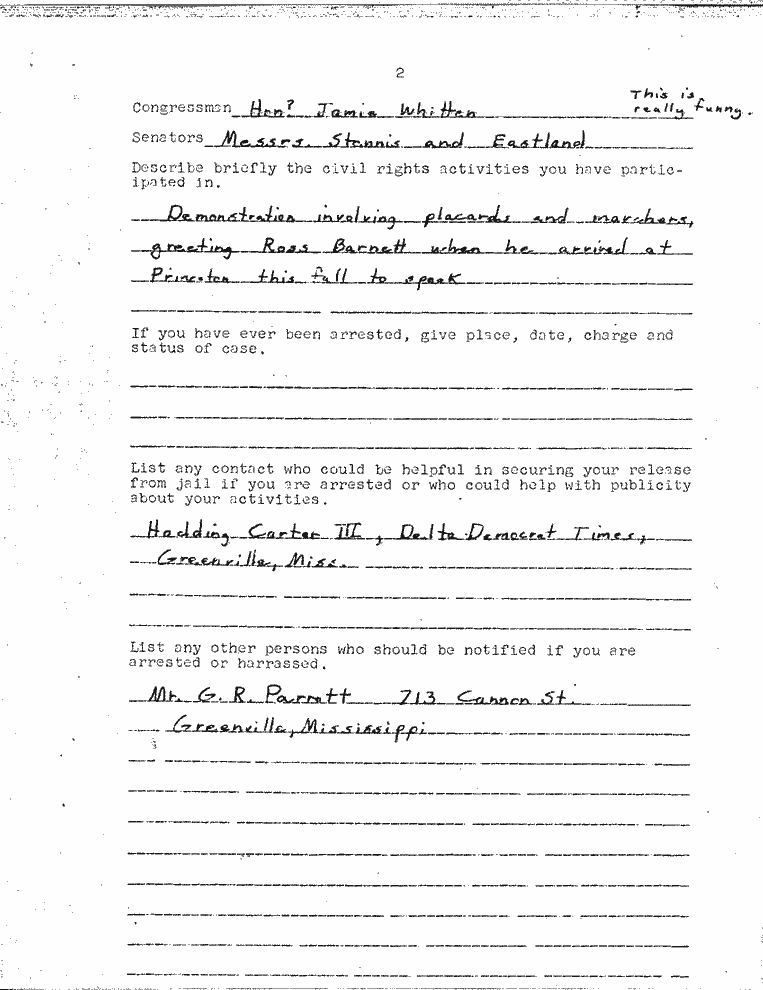 2
This is
Congressman Hon? Jamie Whitten really funny.
Senators Messrs. Stennis and Eastland
Describe briefly the civil rights activities you have partic-
ipated in.
Demonstration involving placards and marchers,
greeting Ross Barnett when he arrived at
Princeton this fall to speak
If you have ever been arrested, give place, date, charge and
status of case.
List any contact who could be helpful in securing your release
from jail if you are arrested or who could help with publicity
about your activities.
Hodding Carter III, Delta Democrat Times,
Greenville, Miss.
List any other persons who should be notified if you are
arrested or harrassed.
Mr. G. R. Parratt 713 Cannon St.
Greenville, Mississippi